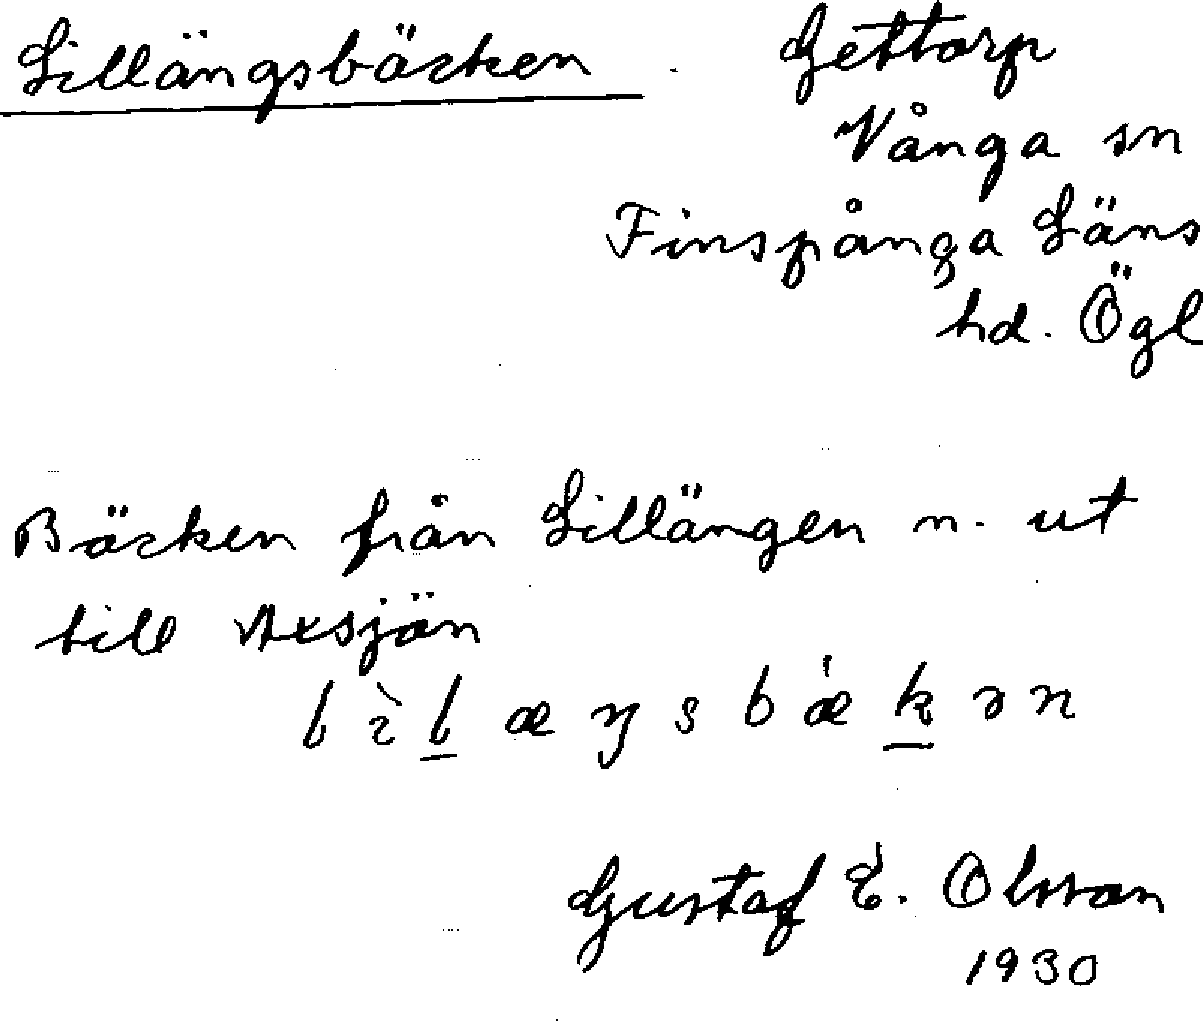 Lillängsbäcken Gettorp
Vånga sn
Finspånga Läns
hd. Ögl
Bäcken från Lillängen n. ut
till Axsjön
lìlæŋsbǽkən
Gustaf E. Olsson
1930